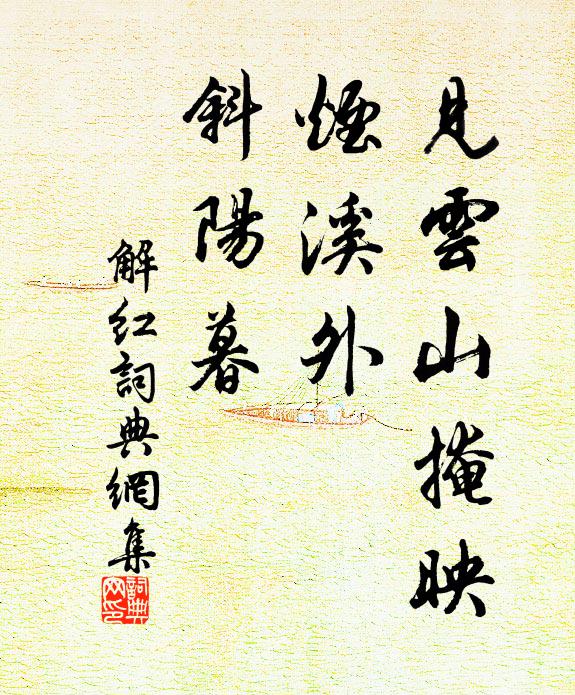 見雲山掩映
煙溪外
斜陽暮
解紅詞典網集
詞典網印